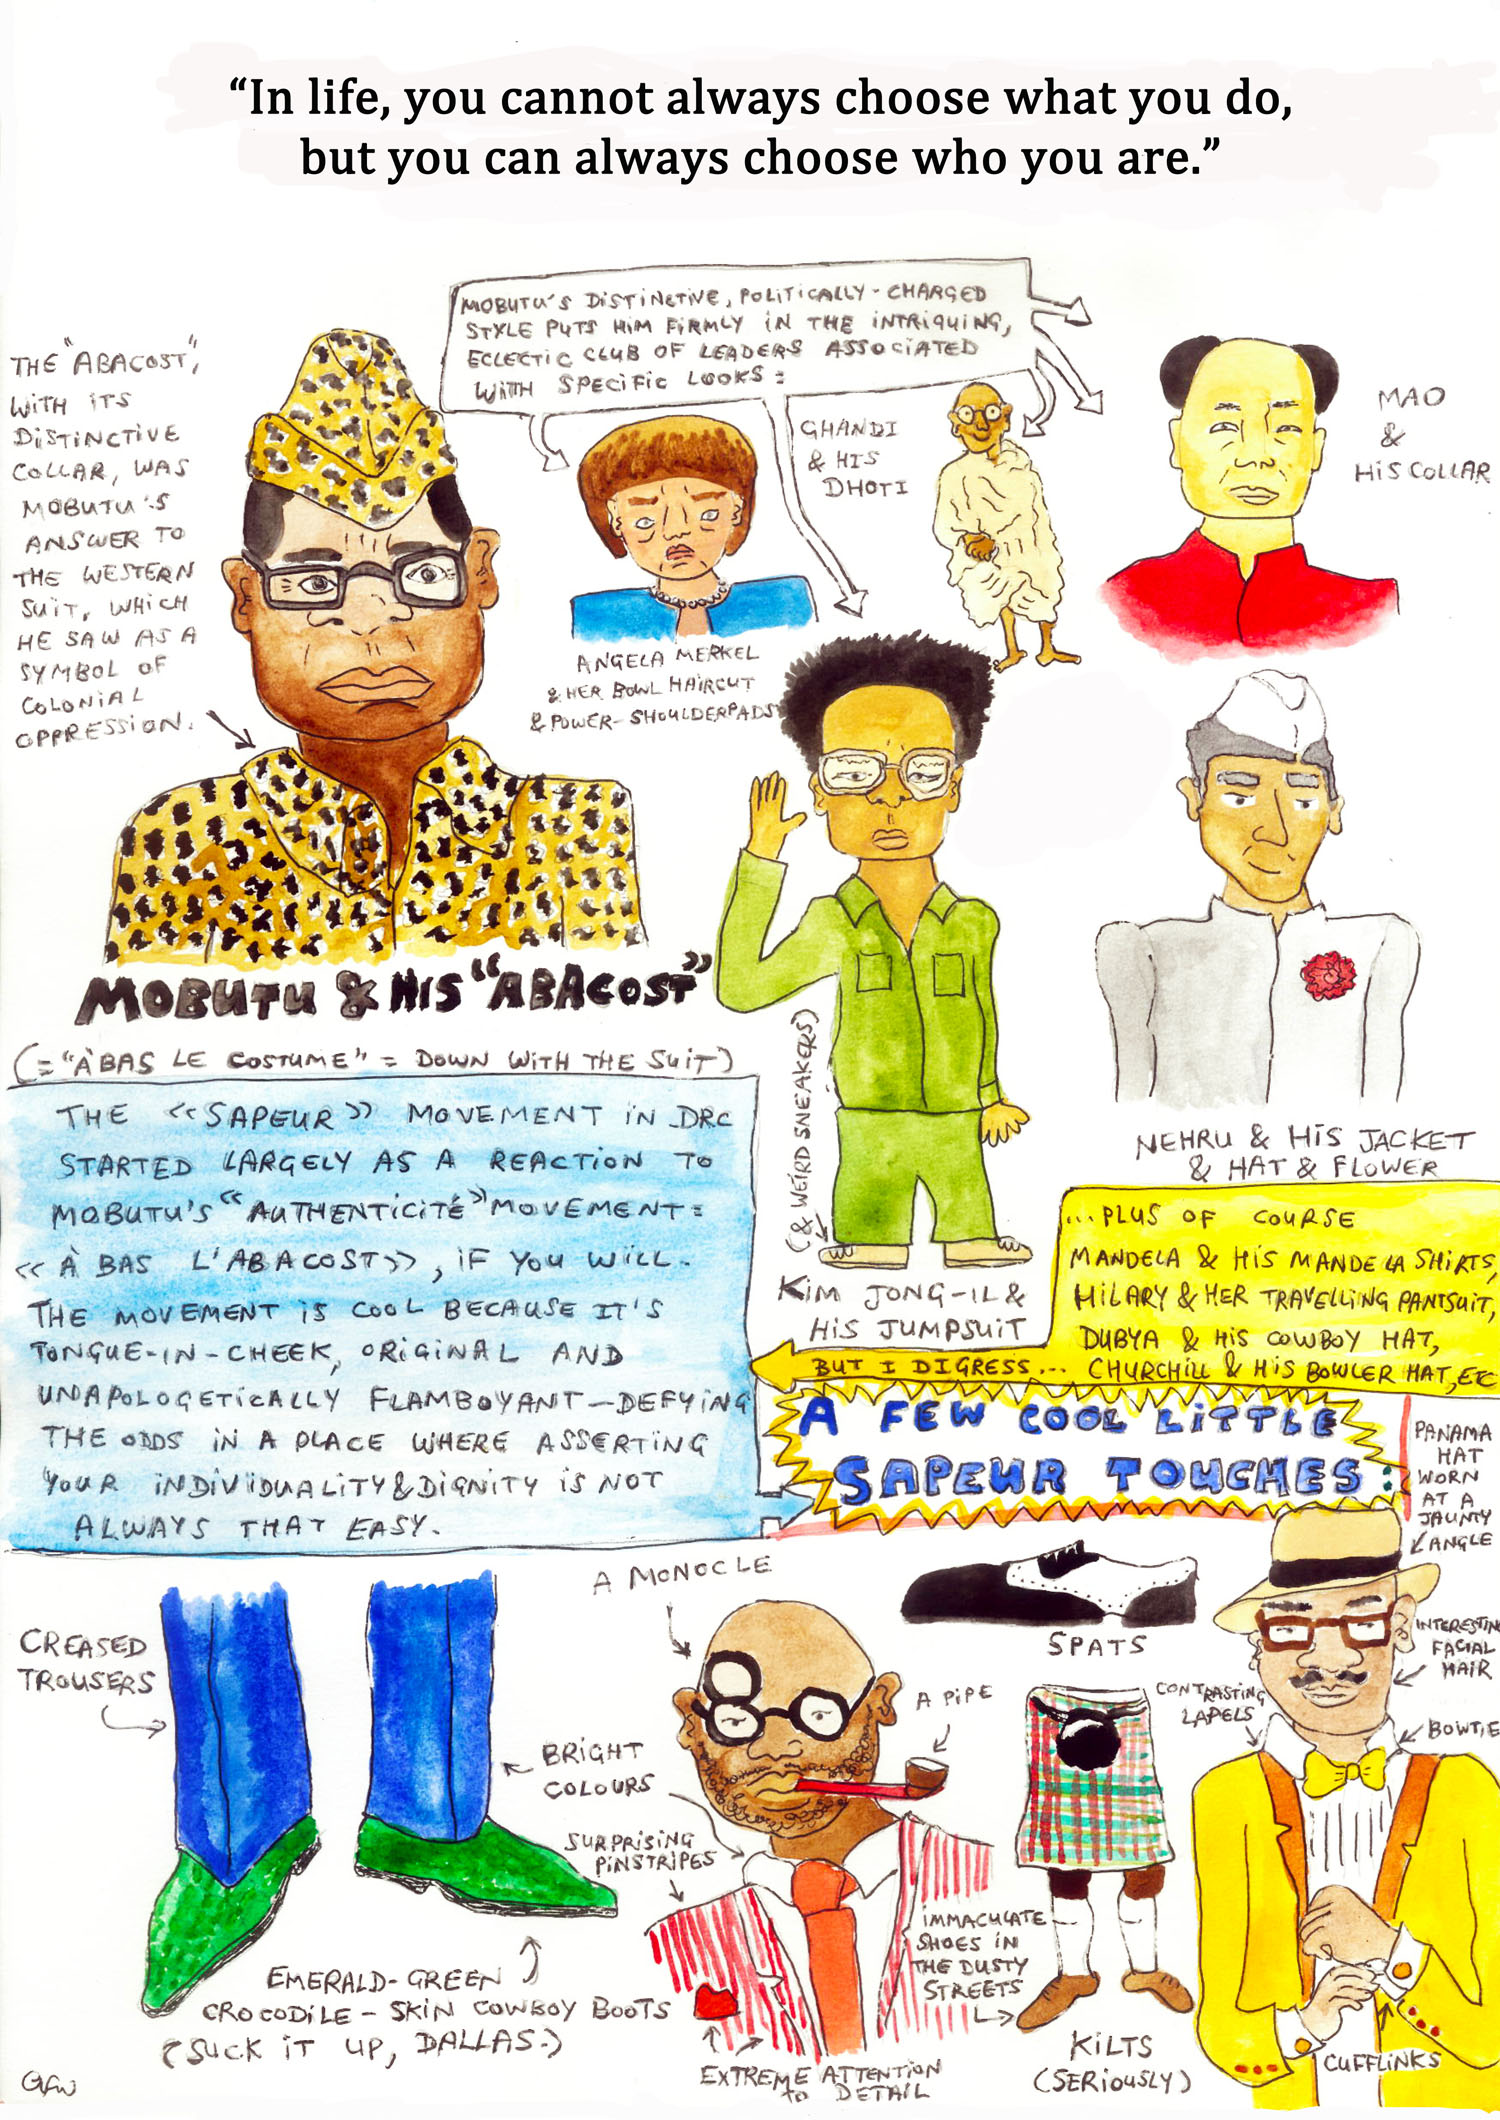 “In life, you cannot always choose what you do,
but you can always choose who you are.”
MOBUTU'S DISTINCTIVE, POLITICALLY-CHARGED
STYLE PUTS HIM FIRMLY IN THE INTRIQUING,
ECLECTIC CLUB OF LEADERS ASSOCIATED
WITH SPECIFIC LOOKS:
THE "ABACOST",
WITH ITS
DISTINCTIVE
COLLAR, WAS
MOBUTU'S
ANSWER TO
THE WESTERN
SUIT, WHICH
HE SAW AS A
SYMBOL OF
COLONIAL
OPPRESSION.
GHANDI
& HIS
DHOTI
MAO
&
HIS COLLAR
ANGELA MERKEL
& HER BOWL HAIRCUT
& POWER-SHOULDERPADS
MOBUTU & HIS "ABACOST"
(= "À BAS LE COSTUME" = DOWN WITH THE SUIT)
THE «SAPEUR» MOVEMENT IN DRC
STARTED LARGELY AS A REACTION TO
MOBUTU'S "AUTHENTICITÉ" MOVEMENT:
«À BAS L'ABACOST», IF YOU WILL.
THE MOVEMENT IS COOL BECAUSE IT'S
TONGUE-IN-CHEEK, ORIGINAL AND
UNAPOLOGETICALLY FLAMBOYANT—DEFYING
THE ODDS IN A PLACE WHERE ASSERTING
YOUR INDIVIDUALITY & DIGNITY IS NOT
ALWAYS THAT EASY.
(& WEIRD SNEAKERS)
KIM JONG-IL &
HIS JUMPSUIT
NEHRU & HIS JACKET
& HAT & FLOWER
...PLUS OF COURSE
MANDELA & HIS MANDELA SHIRTS,
HILARY & HER TRAVELLING PANTSUIT,
DUBYA & HIS COWBOY HAT,
CHURCHILL & HIS BOWLER HAT, ETC
BUT I DIGRESS...
A FEW COOL LITTLE
SAPEUR TOUCHES:
PANAMA
HAT
WORN
AT A
JAUNTY
ANGLE
CREASED
TROUSERS
BRIGHT
COLOURS
EMERALD-GREEN
CROCODILE-SKIN COWBOY BOOTS
(SUCK IT UP, DALLAS.)
A MONOCLE
A PIPE
SURPRISING
PINSTRIPES
EXTREME ATTENTION
to DETAIL
SPATS
IMMACULATE
SHOES IN
THE DUSTY
STREETS
KILTS
(SERIOUSLY)
CONTRASTING
LAPELS
INTERESTING
FACIAL
HAIR
BOWTIE
CUFFLINKS